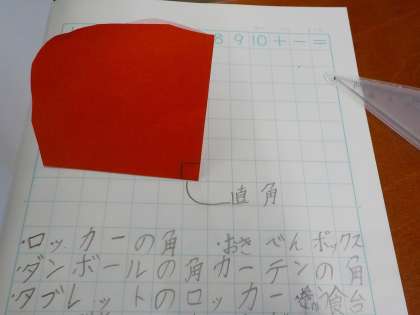 8 9 10 + − =
直角
・ロッカーの角 ・おきべんボックス
・ダンボールの角 カーテンの角
・タブレットのロッカー 食台